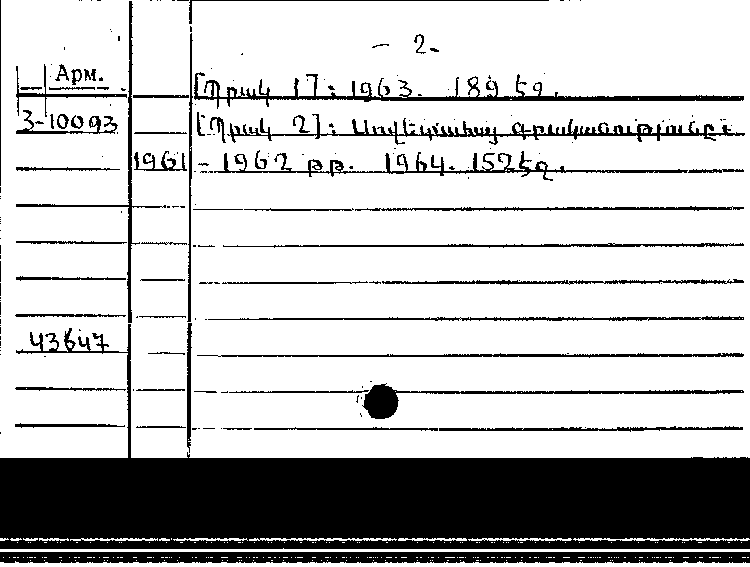 - 2.
Арм.
[Պրակ 1]: 1963. 189 էջ.
3-10093 [Պրակ 2]: Սովետահայ գրականությունը
1961 - 1962 թթ. 1964. 152 էջ.
43647